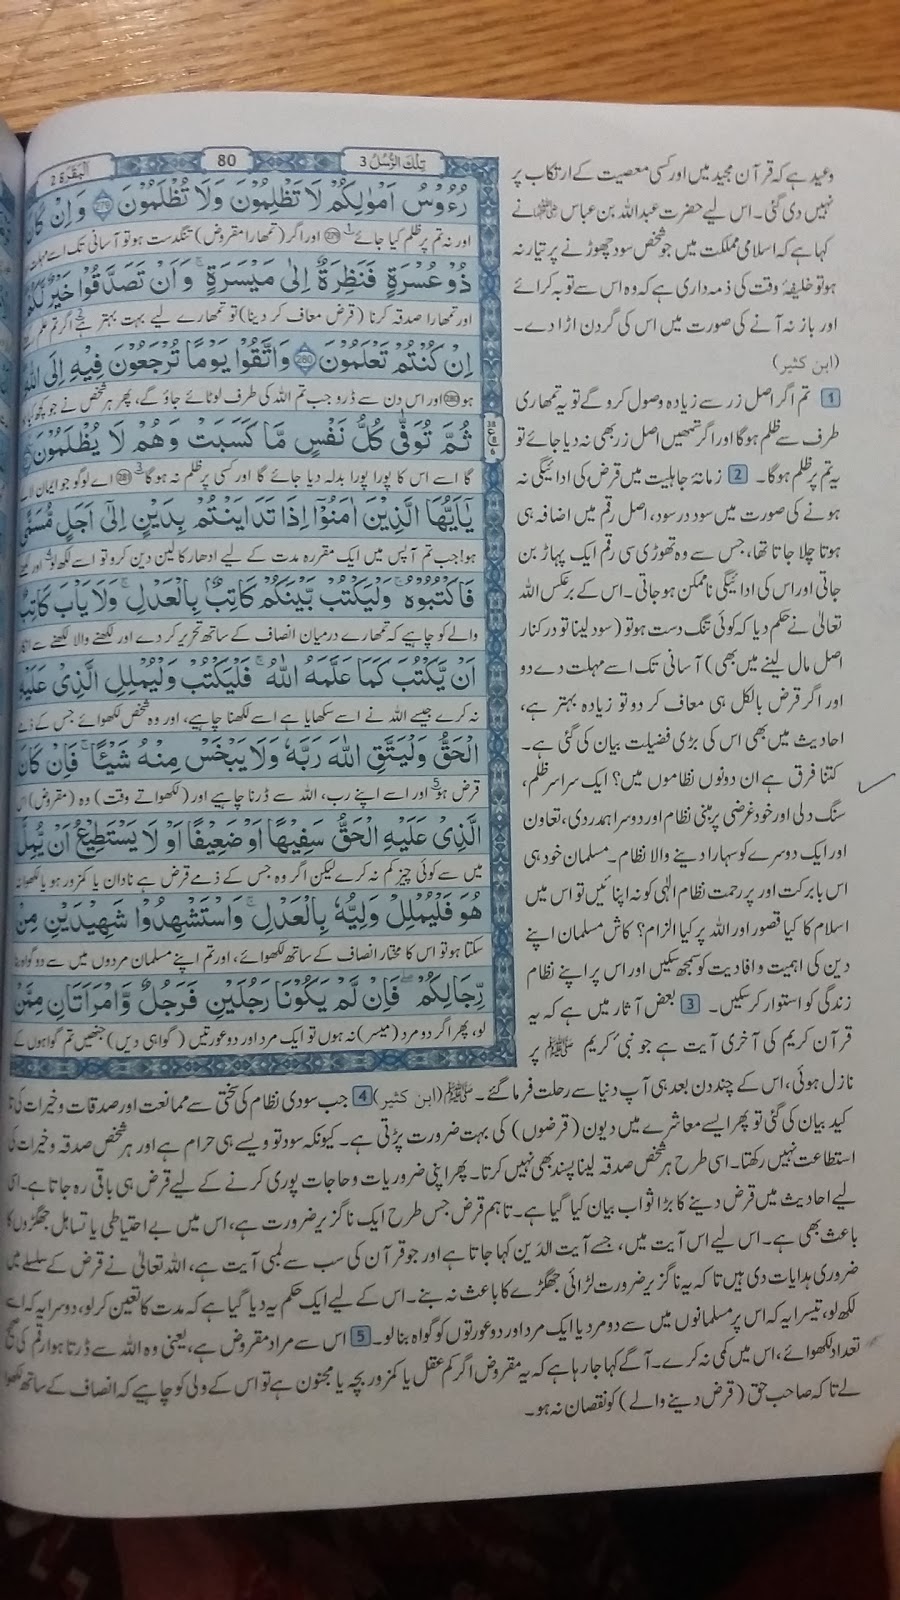 اَلْبَقَرَة 2
80
تِلْكَ الرُّسُلُ 3
رُءُوْسُ اَمْوَالِكُمْ لَا تَظْلِمُوْنَ وَلَا تُظْلَمُوْنَ ﴿279﴾ وَاِنْ كَانَ
اور نہ تم پر ظلم کیا جائے 1 ﴿279﴾ اور اگر (تمھارا مقروض) تنگدست ہو تو آسانی تک اسے مہلت
ذُوْ عُسْرَةٍ فَنَظِرَةٌ اِلٰى مَيْسَرَةٍ ۚ وَاَنْ تَصَدَّقُوْا خَيْرٌ لَّكُمْ
اور تمھارا صدقہ کرنا (قرض معاف کر دینا) تو تمھارے لیے بہت بہتر ہے 2 اگر تم علم
اِنْ كُنْتُمْ تَعْلَمُوْنَ ﴿280﴾ وَاتَّقُوْا يَوْمًا تُرْجَعُوْنَ فِيْهِ اِلَى اللّٰهِ
ہو ﴿280﴾ اور اس دن سے ڈرو جب تم اللہ کی طرف لوٹائے جاؤ گے، پھر ہر شخص نے جو کچھ
ثُمَّ تُوَفّٰى كُلُّ نَفْسٍ مَّا كَسَبَتْ وَهُمْ لَا يُظْلَمُوْنَ
گا اسے اس کا پورا پورا بدلہ دیا جائے گا اور کسی پر ظلم نہ ہو گا 3 ﴿281﴾ اے لوگو جو ایمان
يٰٓاَيُّهَا الَّذِيْنَ اٰمَنُوْٓا اِذَا تَدَايَنْتُمْ بِدَيْنٍ اِلٰٓى اَجَلٍ مُّسَمًّى
ہو! جب تم آپس میں ایک مقررہ مدت کے لیے ادھار کا لین دین کرو تو اسے لکھ لو 4 اور
فَاكْتُبُوْهُ ۚ وَلْيَكْتُبْ بَّيْنَكُمْ كَاتِبٌۢ بِالْعَدْلِ ۚ وَلَا يَاْبَ كَاتِبٌ
والے کو چاہیے کہ تمھارے درمیان انصاف کے ساتھ تحریر کر دے اور لکھنے والا لکھنے سے
اَنْ يَّكْتُبَ كَمَا عَلَّمَهُ اللّٰهُ ۚ فَلْيَكْتُبْ وَلْيُمْلِلِ الَّذِيْ عَلَيْهِ
نہ کرے جیسے اللہ نے اسے سکھایا ہے اسے لکھنا چاہیے، اور وہ شخص لکھوائے جس کے ذمے
الْحَقُّ وَلْيَتَّقِ اللّٰهَ رَبَّهٗ وَلَا يَبْخَسْ مِنْهُ شَيْئًا ۚ فَاِنْ كَانَ
قرض ہو 5 اور اسے اپنے رب، اللہ سے ڈرنا چاہیے اور (لکھواتے وقت) وہ (مقروض) اس
الَّذِيْ عَلَيْهِ الْحَقُّ سَفِيْهًا اَوْ ضَعِيْفًا اَوْ لَا يَسْتَطِيْعُ اَنْ يُّمِلَّ
میں سے کوئی چیز کم نہ کرے لیکن اگر وہ جس کے ذمے قرض ہے نادان یا کمزور ہو یا لکھوا نہ
هُوَ فَلْيُمْلِلْ وَلِيُّهٗ بِالْعَدْلِ ۚ وَاسْتَشْهِدُوْا شَهِيْدَيْنِ مِنْ
سکتا ہو تو اس کا مختار انصاف کے ساتھ لکھوائے، اور تم اپنے مسلمان مردوں میں سے دو گواہ
رِّجَالِكُمْ ۚ فَاِنْ لَّمْ يَكُوْنَا رَجُلَيْنِ فَرَجُلٌ وَّامْرَاَتٰنِ مِمَّنْ
لو، پھر اگر دو مرد (میسر) نہ ہوں تو ایک مرد اور دو عورتیں (گواہی دیں) جنھیں تم گواہوں کے
وعید ہے کہ قرآن مجید میں اور کسی معصیت کے ارتکاب پر
نہیں دی گئی۔ اس لیے حضرت عبداللہ بن عباس نے
کہا ہے کہ اسلامی مملکت میں جو شخص سود چھوڑنے پر تیار نہ
ہو تو خلیفۂ وقت کی ذمہ داری ہے کہ وہ اس سے توبہ کرائے
اور باز نہ آنے کی صورت میں اس کی گردن اڑا دے۔
(ابن کثیر)
1 تم اگر اصل زر سے زیادہ وصول کرو گے تو یہ تمھاری
طرف سے ظلم ہو گا اور اگر تمھیں اصل زر بھی نہ دیا جائے تو
یہ تم پر ظلم ہو گا۔ 2 زمانۂ جاہلیت میں قرض کی ادائیگی نہ
ہونے کی صورت میں سود در سود، اصل رقم میں اضافہ ہی
ہوتا چلا جاتا تھا، جس سے وہ تھوڑی سی رقم ایک پہاڑ بن
جاتی اور اس کی ادائیگی ناممکن ہو جاتی۔ اس کے برعکس اللہ
تعالیٰ نے حکم دیا کہ کوئی تنگ دست ہو تو (سود لینا تو درکنار
اصل مال لینے میں بھی) آسانی تک اسے مہلت دے دو
اور اگر قرض بالکل ہی معاف کر دو تو زیادہ بہتر ہے،
احادیث میں بھی اس کی بڑی فضیلت بیان کی گئی ہے۔
کتنا فرق ہے ان دونوں نظاموں میں؟ ایک سراسر ظلم،
سنگ دلی اور خود غرضی پر مبنی نظام اور دوسرا ہمدردی، تعاون
اور ایک دوسرے کو سہارا دینے والا نظام۔ مسلمان خود ہی
اس بابرکت اور پر رحمت نظام الٰہی کو نہ اپنائیں تو اس میں
اسلام کا کیا قصور اور اللہ پر کیا الزام؟ کاش مسلمان اپنے
دین کی اہمیت و افادیت کو سمجھ سکیں اور اس پر اپنے نظام
زندگی کو استوار کر سکیں۔ 3 بعض آثار میں ہے کہ یہ
قرآن کریم کی آخری آیت ہے جو نبیٔ کریم ﷺ پر
نازل ہوئی، اس کے چند دن بعد ہی آپ دنیا سے رحلت فرما گئے۔ ﷺ (ابن کثیر) 4 جب سودی نظام کی سختی سے ممانعت اور صدقات و خیرات کی تا
کید بیان کی گئی تو پھر ایسے معاشرے میں دیون (قرضوں) کی بہت ضرورت پڑتی ہے۔ کیونکہ سود تو ویسے ہی حرام ہے اور ہر شخص صدقہ و خیرات کی
استطاعت نہیں رکھتا۔ اسی طرح ہر شخص صدقہ لینا پسند بھی نہیں کرتا۔ پھر اپنی ضروریات و حاجات پوری کرنے کے لیے قرض ہی باقی رہ جاتا ہے۔ اسی
لیے احادیث میں قرض دینے کا بڑا ثواب بیان کیا گیا ہے۔ تاہم قرض جس طرح ایک ناگزیر ضرورت ہے، اس میں بے احتیاطی یا تساہل جھگڑوں کا
باعث بھی ہے۔ اس لیے اس آیت میں، جسے آیت الدّین کہا جاتا ہے اور جو قرآن کی سب سے لمبی آیت ہے، اللہ تعالیٰ نے قرض کے سلسلے میں
ضروری ہدایات دی ہیں تا کہ یہ ناگزیر ضرورت لڑائی جھگڑے کا باعث نہ بنے۔ اس کے لیے ایک حکم یہ دیا گیا ہے کہ مدت کا تعین کر لو، دوسرا یہ کہ اسے
لکھ لو، تیسرا یہ کہ اس پر مسلمانوں میں سے دو مرد یا ایک مرد اور دو عورتوں کو گواہ بنا لو۔ 5 اس سے مراد مقروض ہے، یعنی وہ اللہ سے ڈرتا ہوا رقم کی صحیح
تعداد لکھوائے، اس میں کمی نہ کرے۔ آگے کہا جا رہا ہے کہ یہ مقروض اگر کم عقل یا کمزور بچہ یا مجنون ہے تو اس کے ولی کو چاہیے کہ انصاف کے ساتھ لکھوا
لے تا کہ صاحب حق (قرض دینے والے) کو نقصان نہ ہو۔